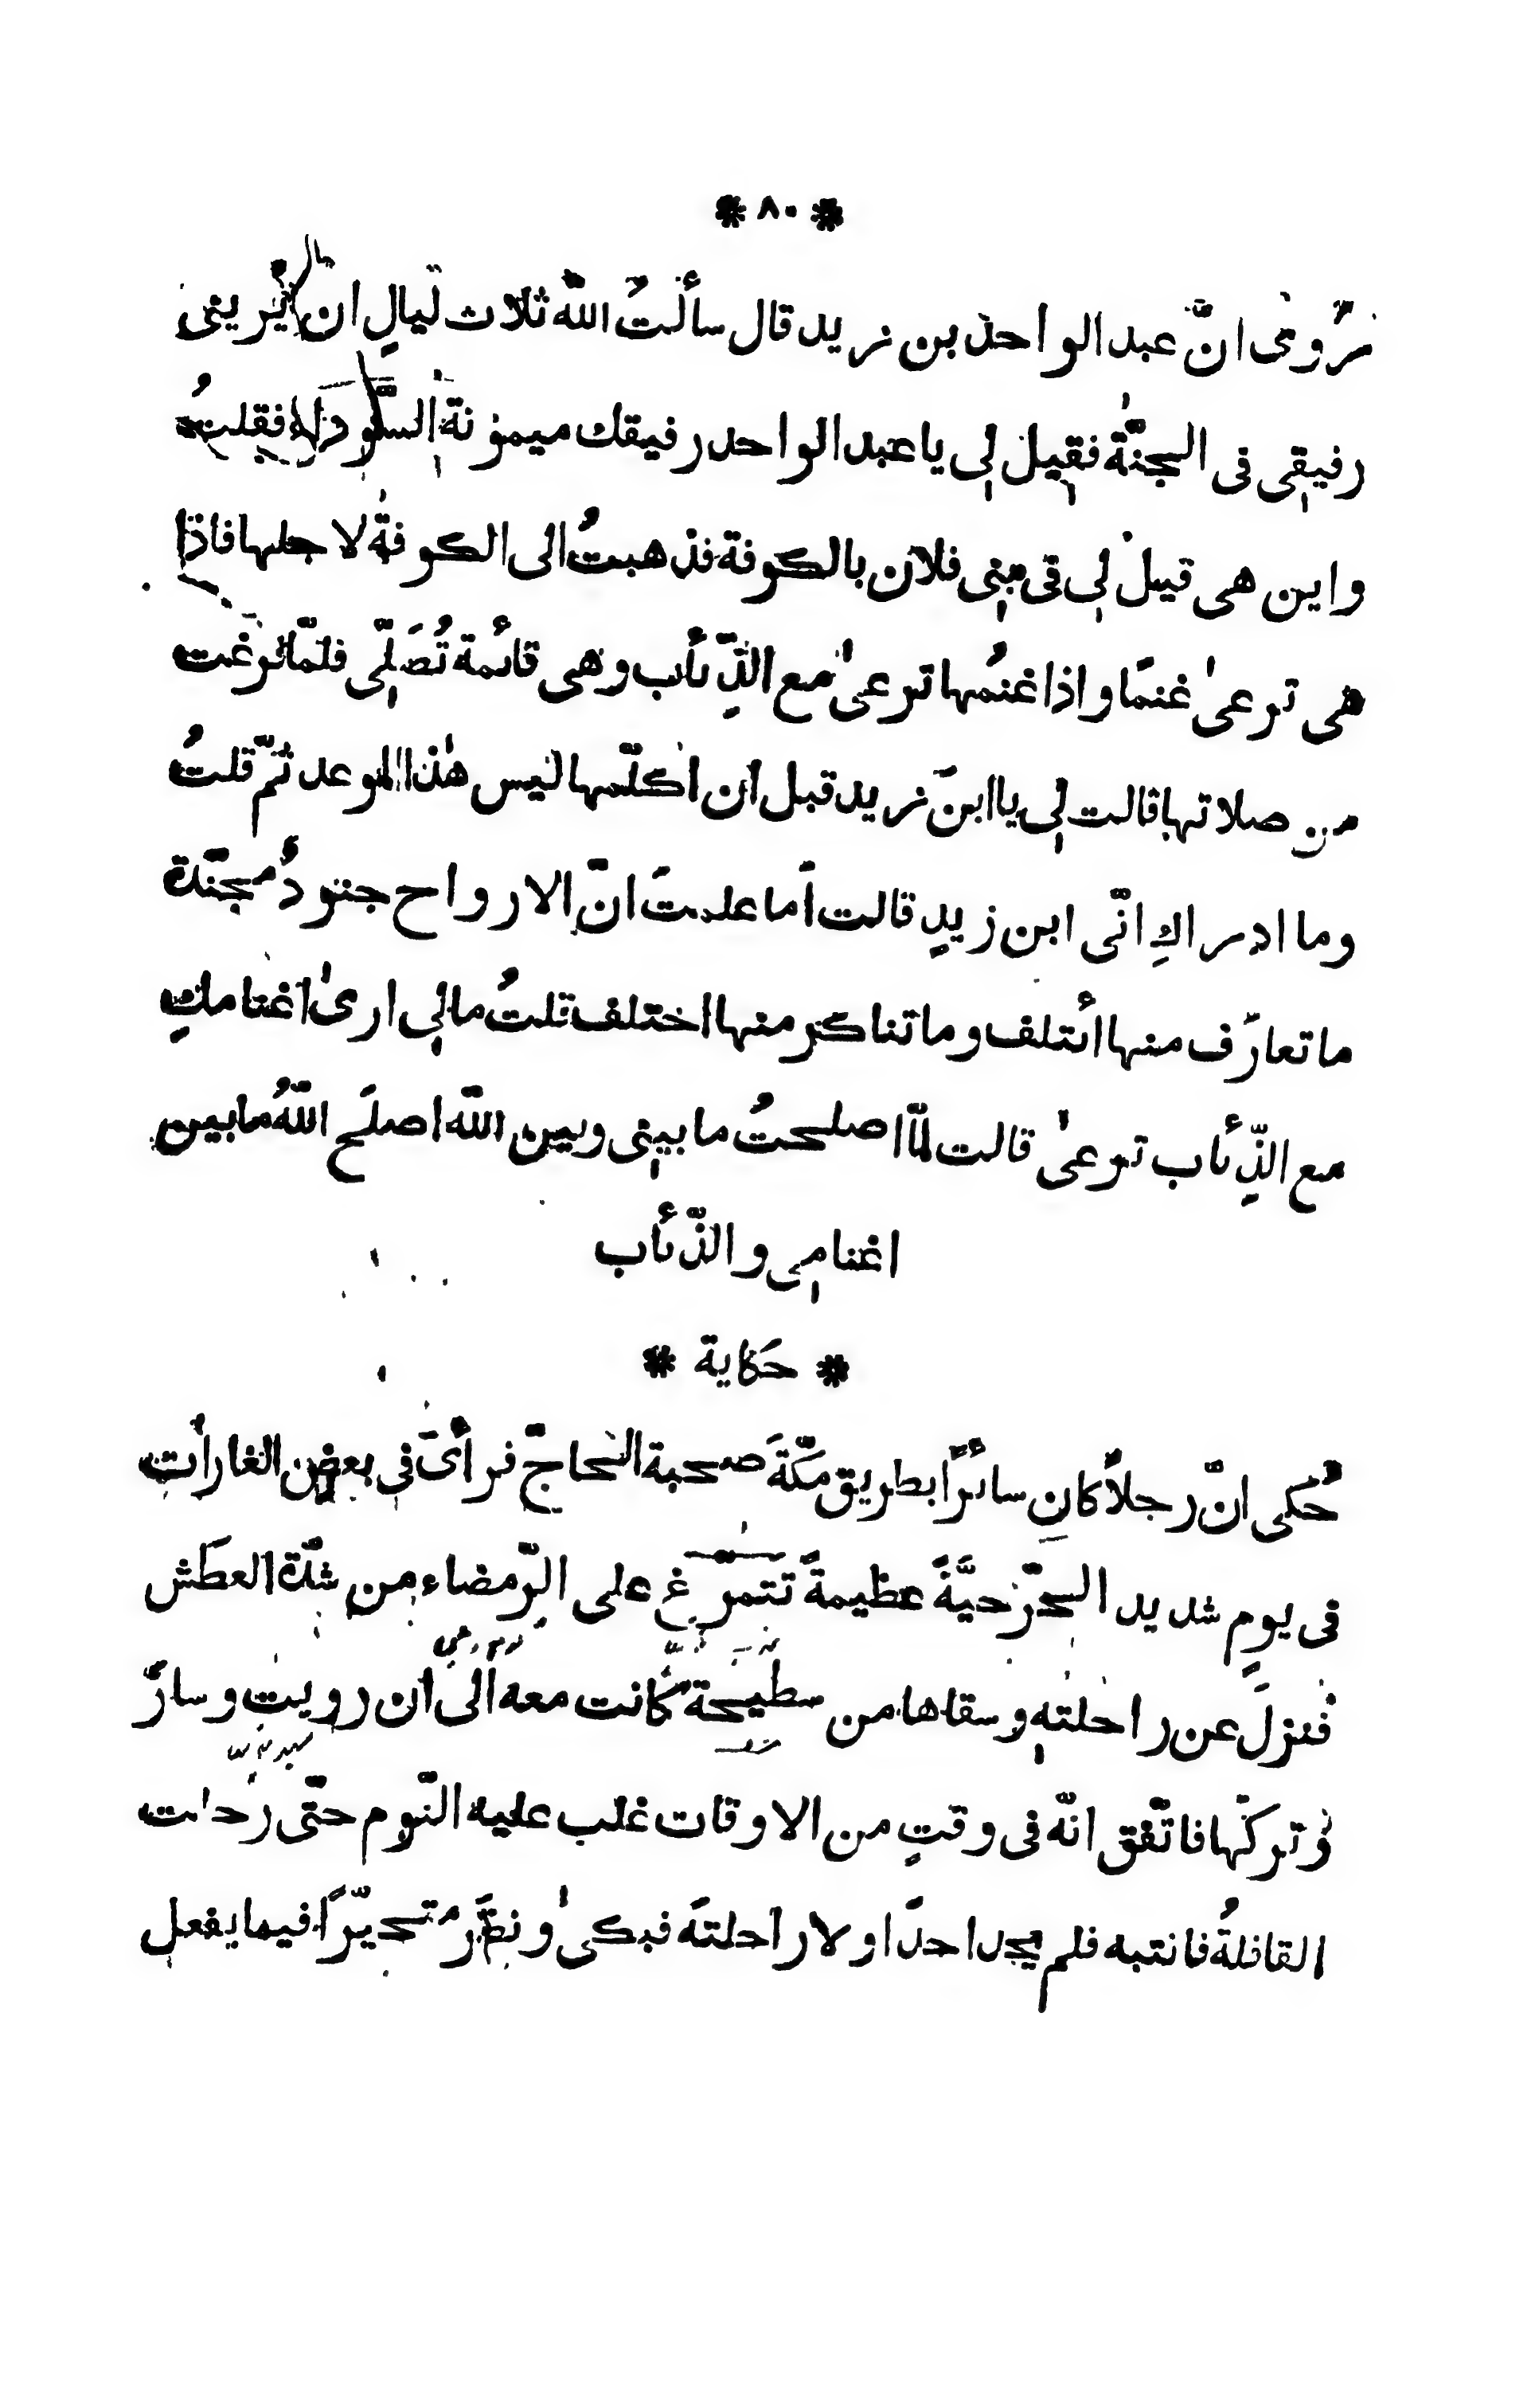 * ٨٠ *
رُوِی انَّ عبد الواحد بن زید قال سألتُ اللّٰه ثلاث لیالٍ ان یُرینی
رفیقی فی الجنّة فقیل لی یا عبد الواحد رفیقك میمونة السّوداء فقلتُ
واین هی قیل لی فی بنی فلان بالکوفة فذهبتُ الی الکوفة لاجلها فاذا
هی ترعیٰ غنمًا واذا غنمُها ترعیٰ مع الذِّئأب وهی قائمة تُصَلّی فلمّا فرغت
من صلاتها قالت لی یا ابنَ زید قبل ان اکلّمها لیس هٰذا الموعد ثمّ قلتُ
وما ادراكِ انّی ابن زیدٍ قالت أما علمتَ انّ الارواح جنودٌ مجنّدة
ما تعارَف منها ائتلف وما تناکر منها اختلف قلتُ مالی اریٰ اغنامكِ
مع الذِّئأب ترعیٰ قالت لمّا اصلحتُ ما بینی وبین اللّٰه اصلَح اللّٰهُ ما بین
اغنامی والذّئأب
* حَکایة *
حُکی انّ رجلاً کان سائرًا بطریق مکّةَ صحبة الحاجّ فرأیَ فی بعض الغارات
فی یومٍ شدید الحَرّ حیَّةً عظیمةً تتمرّغ علی الرّمضاء من شدّة العطَش
فنزلَ عن راحلتهِ وسقاها من سطیحة کانت معه الیٰ ان رویت وسارَ
وترکها فاتّفق انّه فی وقتٍ من الاوقات غلب علیه النّوم حتّی رحلت
القافلةُ فانتبه فلم یجد احدًا ولا راحلتَه فبکیٰ ونظَر متحیّرًا فیما یفعل